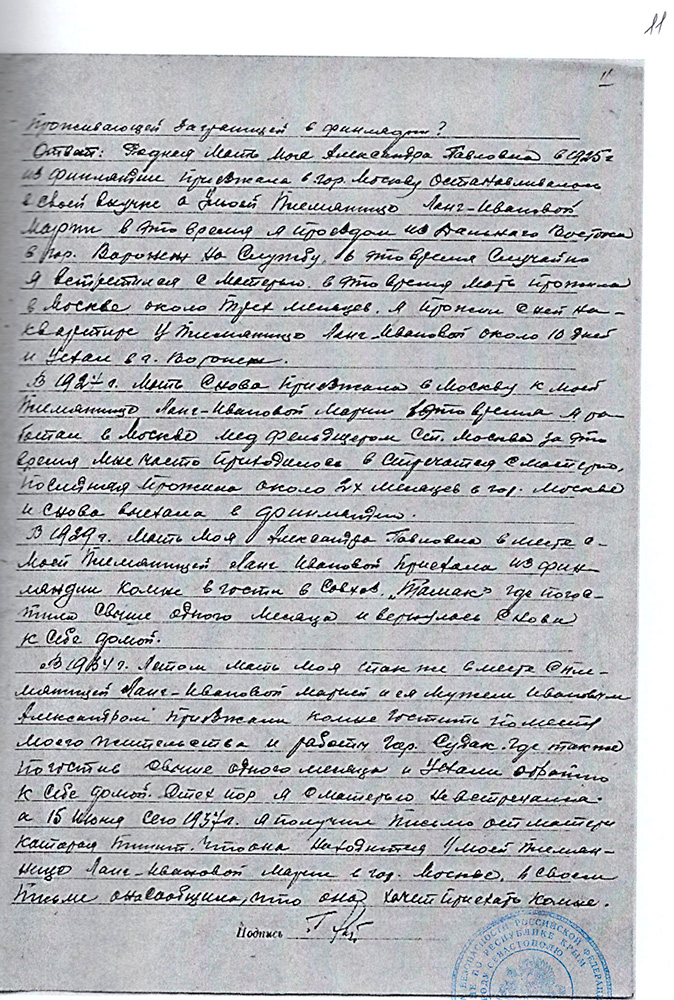 11
11
Проживающей заграницей в финляндии?
Ответ: Родная Мать Моя Александра Павловна в 1925 г
из финляндии приезжала в гор. Москву останавливалась
в своей внучке а моей Племянницо Ланг-Ивановой
Марии в это время я проездом из Дальнего Востока
в гор. Воронеж на Службу, в это время Случайно
я встретился с матерью. в это время мать прожила
в Москве около трех месяцев. Я прожил с ней на-
квартире у Племянницо Ланг-Ивановой около 10 дней
и уехал в г. Воронеж.
В 1927 г. Мать Снова приезжала в Москву к моей
Племянницо Ланг-Ивановой Марии в это время я ра-
ботал в Москве мед фельдшером ст. Москва за это
время мне часто приходилось встречатся с матерью,
последняя прожила около 2х месяцев в гор. Москве
и снова выехала в финляндию.
В 1929 г. Мать Моя Александра Павловна вместе с-
моей Племянницей Ланг Ивановой приехала из фин-
ляндии комне в гости в Совхоз где погос-
тила Свыше одного месяца и вернулась Снова
к Себе домой.
В 1934 г. Летом мать моя также вместе с пле-
мянницей Ланг-Ивановой Марией и ея мужем Ивановым
Александром приезжали комне гостить по месту
моего жительства и работы гор. Судак. где также
погостив свыше одного месяца и уехали обратно
к себе домой. С тех пор я с матерью не встречался.
а 15 Июня сего 1937 г. я получил письмо от матери
каторая пишит. что она находится у моей племян-
ницо Ланг-Ивановой Марии в гор. Москве, в своем
письме она сообщила, что она хочет приехать комне.
Подпись
БЕЗОПАСНОСТИ РОССИЙСКОЙ ФЕДЕРАЦИИ
ПО РЕСПУБЛИКЕ КРЫМ
ГОРОДУ СЕВАСТОПОЛЮ